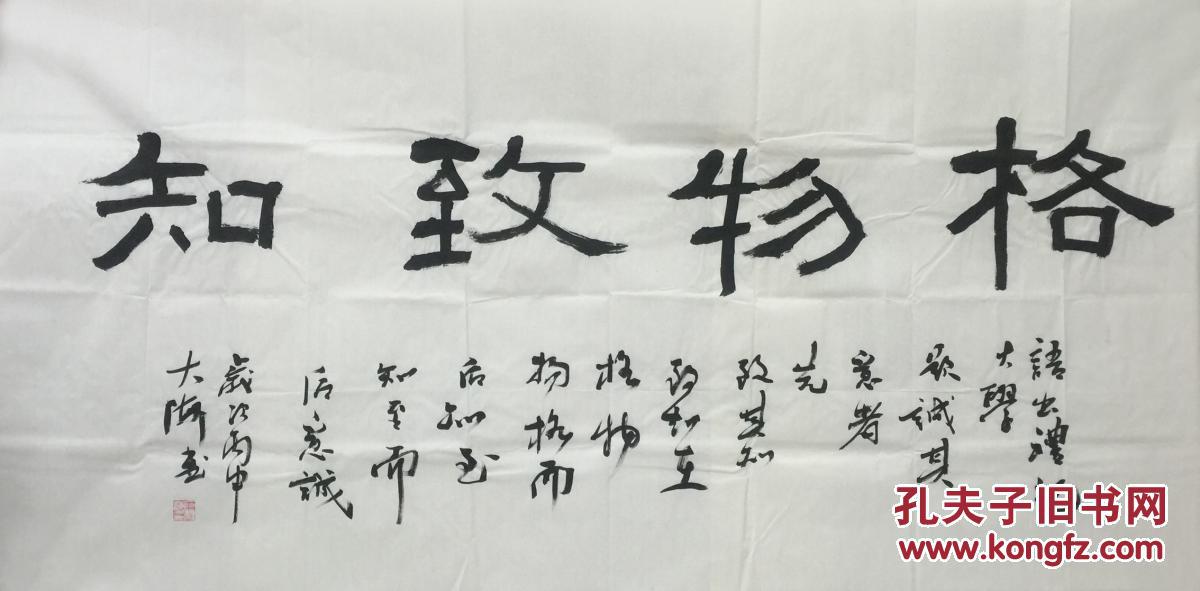 格物致知
語出禮記
大學
欲誠其
意者
先
致其知
致知在
格物
物格而
后知至
知至而
后意誠
歲次丙申
大海書
孔夫子旧书网
www.kongfz.com